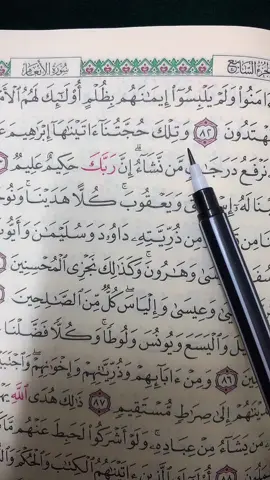 سُورَةُ الأَنْعَامِ
ءَامَنُوا۟ وَلَمْ يَلْبِسُوٓا۟ إِيمَـٰنَهُم بِظُلْمٍ أُو۟لَـٰٓئِكَ لَهُمُ ٱلْأَمْ
هْتَدُونَ ٨٢ وَتِلْكَ حُجَّتُنَآ ءَاتَيْنَـٰهَآ إِبْرَٰهِيمَ عَ
نَرْفَعُ دَرَجَـٰتٍ مَّن نَّشَآءُ إِنَّ رَبَّكَ حَكِيمٌ عَلِيمٌ
وَيَعْقُوبَ كُلًّا هَدَيْنَا وَنُو
مِن ذُرِّيَّتِهِۦ دَاوُۥدَ وَسُلَيْمَـٰنَ وَأَيُّو
وَهَـٰرُونَ وَكَذَٰلِكَ نَجْزِى ٱلْمُحْسِنِينَ
وَعِيسَىٰ وَإِلْيَاسَ كُلٌّ مِّنَ ٱلصَّـٰلِحِينَ
وَٱلْيَسَعَ وَيُونُسَ وَلُوطًا وَكُلًّا فَضَّلْنَا
٨٦ وَمِنْ ءَابَآئِهِمْ وَذُرِّيَّـٰتِهِمْ وَإِخْوَٰنِهِمْ وَٱجْتَبَ
إِلَىٰ صِرَٰطٍ مُّسْتَقِيمٍ ٨٧ ذَٰلِكَ هُدَى ٱللَّهِ
مَن يَشَآءُ مِنْ عِبَادِهِۦ وَلَوْ أَشْرَكُوا۟ لَحَبِطَ عَنْهُم
ءَاتَيْنَـٰهُمُ ٱلْكِتَـٰبَ وَٱلْحُكْمَ